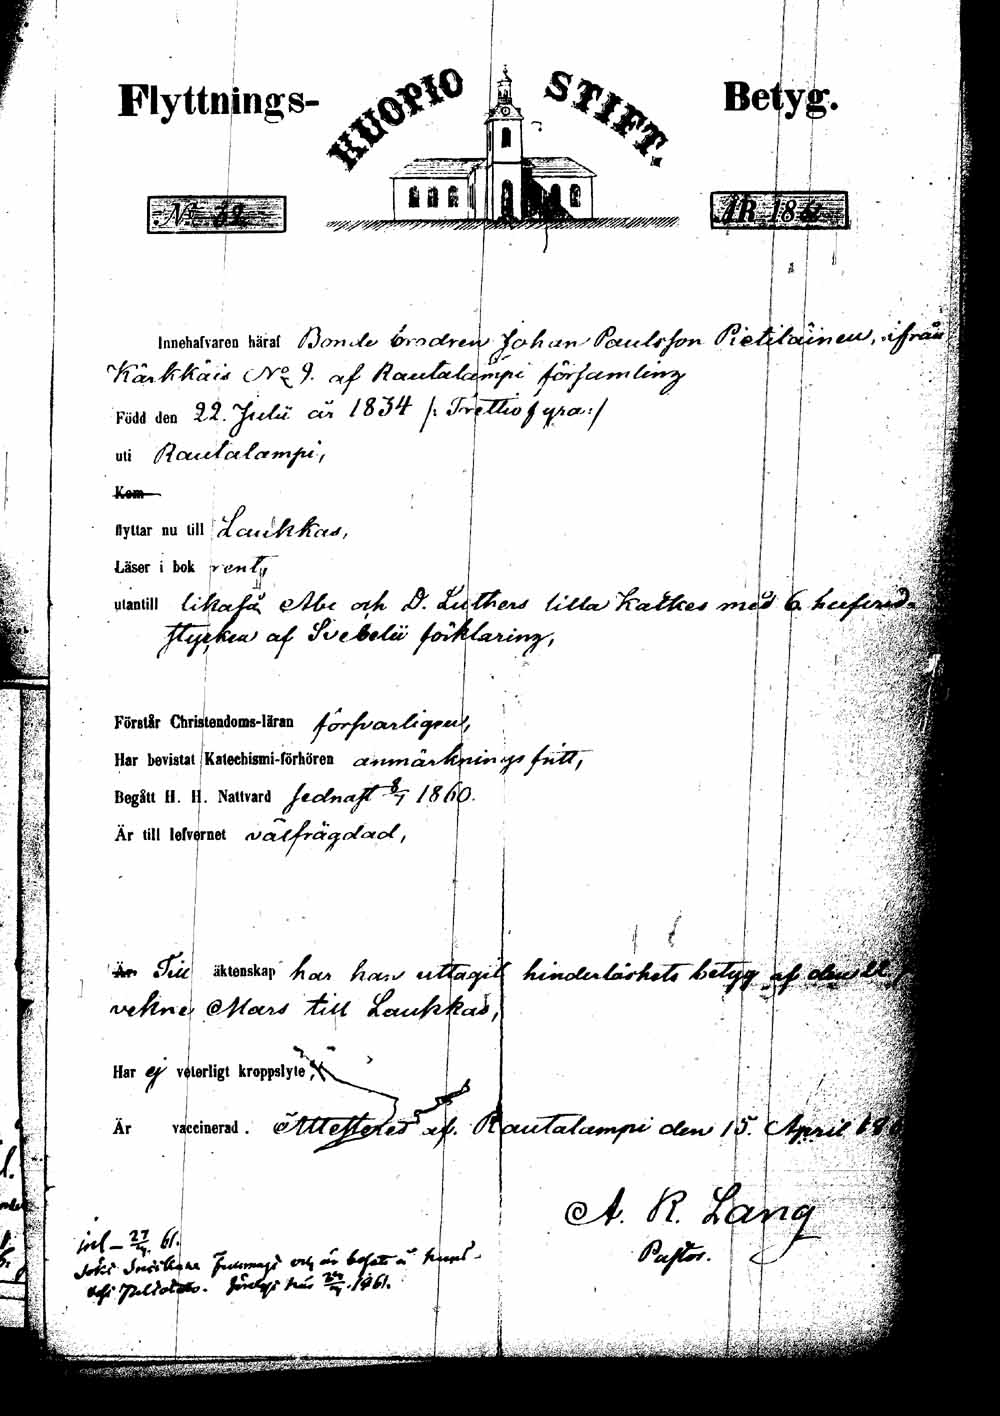 Flyttnings- KUOPIO STIFT. Betyg.
No 32 ÅR 1861
Innehafvaren häraf Bonde brodren Johan Paulsson Pietiläinen, ifrån
Kärkkäis No 9. af Rautalampi församling
Född den 22. Julii år 1834 /: Trettiofyra:/
uti Rautalampi,
Kom
flyttar nu till Laukkas,
Läser i bok rent,
utantill likaså Abc och D. Luthers lilla Katkes med 6. hufvud-
stycken af Svebelii förklaring,
Förstår Christendoms-läran försvarligen,
Har bevistat Katechismi-förhören anmärkningsfritt,
Begått H. H. Nattvard sednast 8/7 1860.
Är till lefvernet välfrägdad,
Är Till äktenskap har han uttagit hinderlöshets betyg af den 22
vekne Mars till Laukkas,
Har ej veterligt kroppslyte,
Är vaccinerad. Attesteras af. Rautalampi den 15. April 186
A. R. Lang
Pastor.
27/4 61.
och är bofatt
27/4 1861.